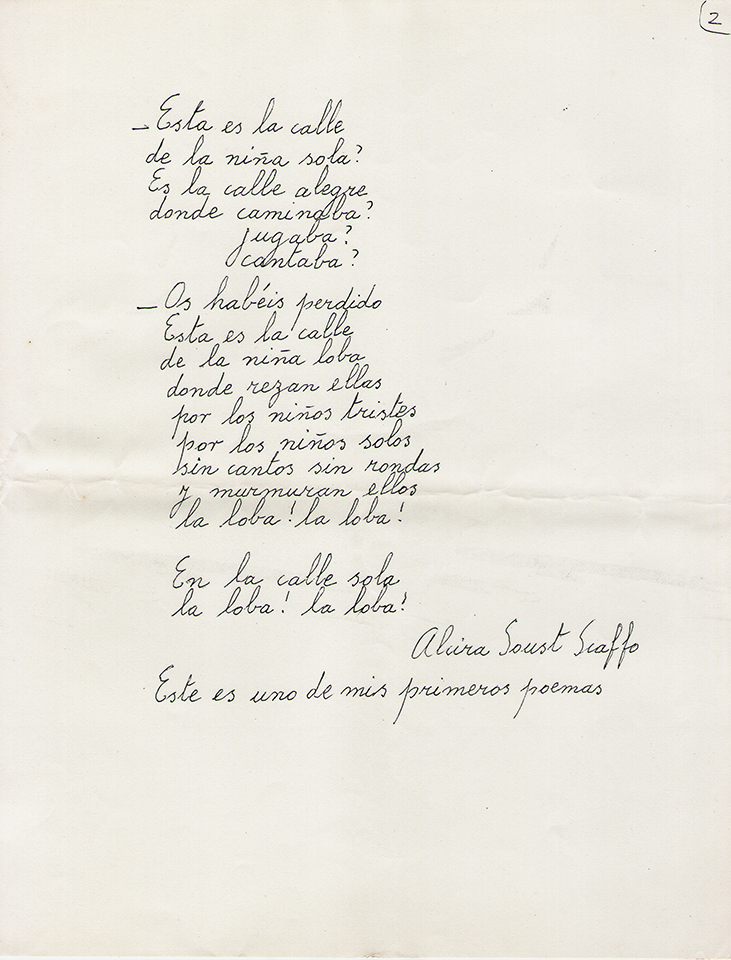 2
_ Esta es la calle
de la niña sola?
Es la calle alegre
donde caminaba?
jugaba?
cantaba?
_ Os habéis perdido
Esta es la calle
de la niña loba
donde rezan ellas
por los niños tristes
por los niños solos
sin cantos sin rondas
y murmuran ellos
la loba! la loba!
En la calle sola
la loba! la loba!
Alcira Soust Scaffo
Este es uno de mis primeros poemas